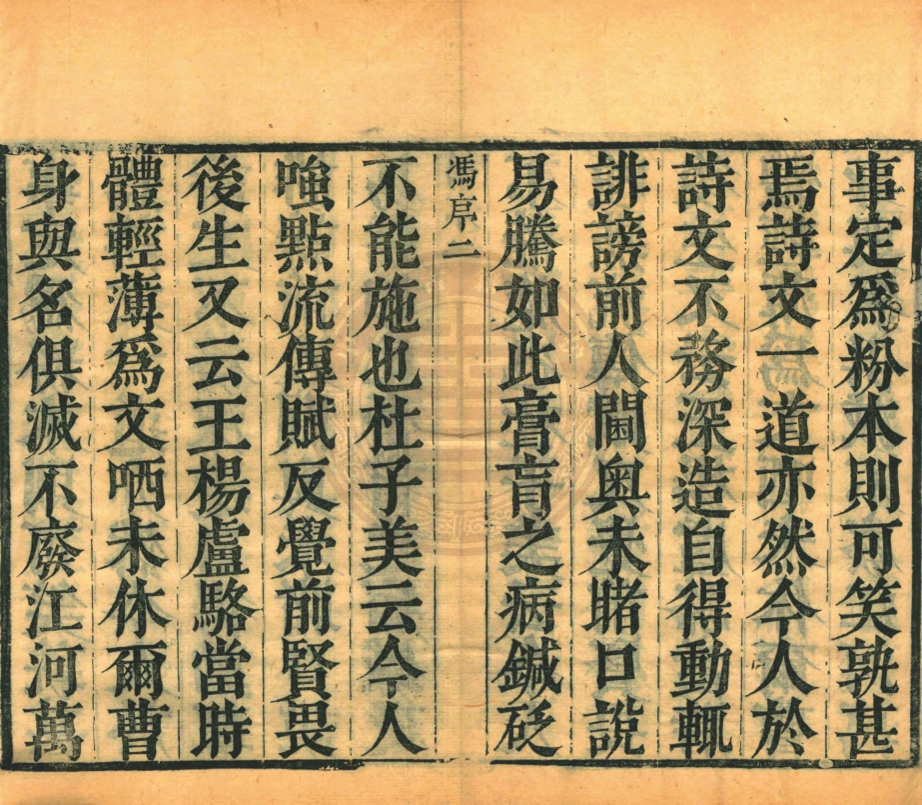 事定爲粉本則可笑孰甚
焉詩文一道亦然今人於
詩文不務深造自得動輒
誹謗前人閫奥未睹口說
易騰如此膏肓之病鍼砭
馮序二
不能施也杜子美云今人
嗤點流傳賦反覺前賢畏
後生又云王楊盧駱當時
體輕薄爲文哂未休爾曹
身與名俱滅不廢江河萬